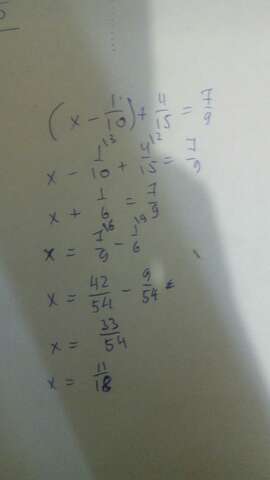 (x - 1/10) + 4/15 = 7/9
x - 1/10 ^13 + 4/15 ^12 = 7/9
x + 1/6 = 7/9
x = 7/9 ^16 - 1/6 ^19
x = 42/54 - 9/54
x = 33/54
x = 11/18